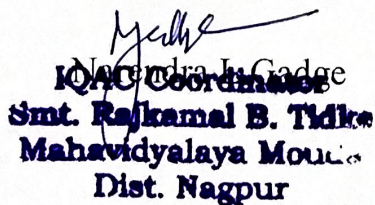 Narendra L. Gadge
IQAC Coordinator
Smt. Rajkamal B. Tidke
Mahavidyalaya Mouda
Dist. Nagpur